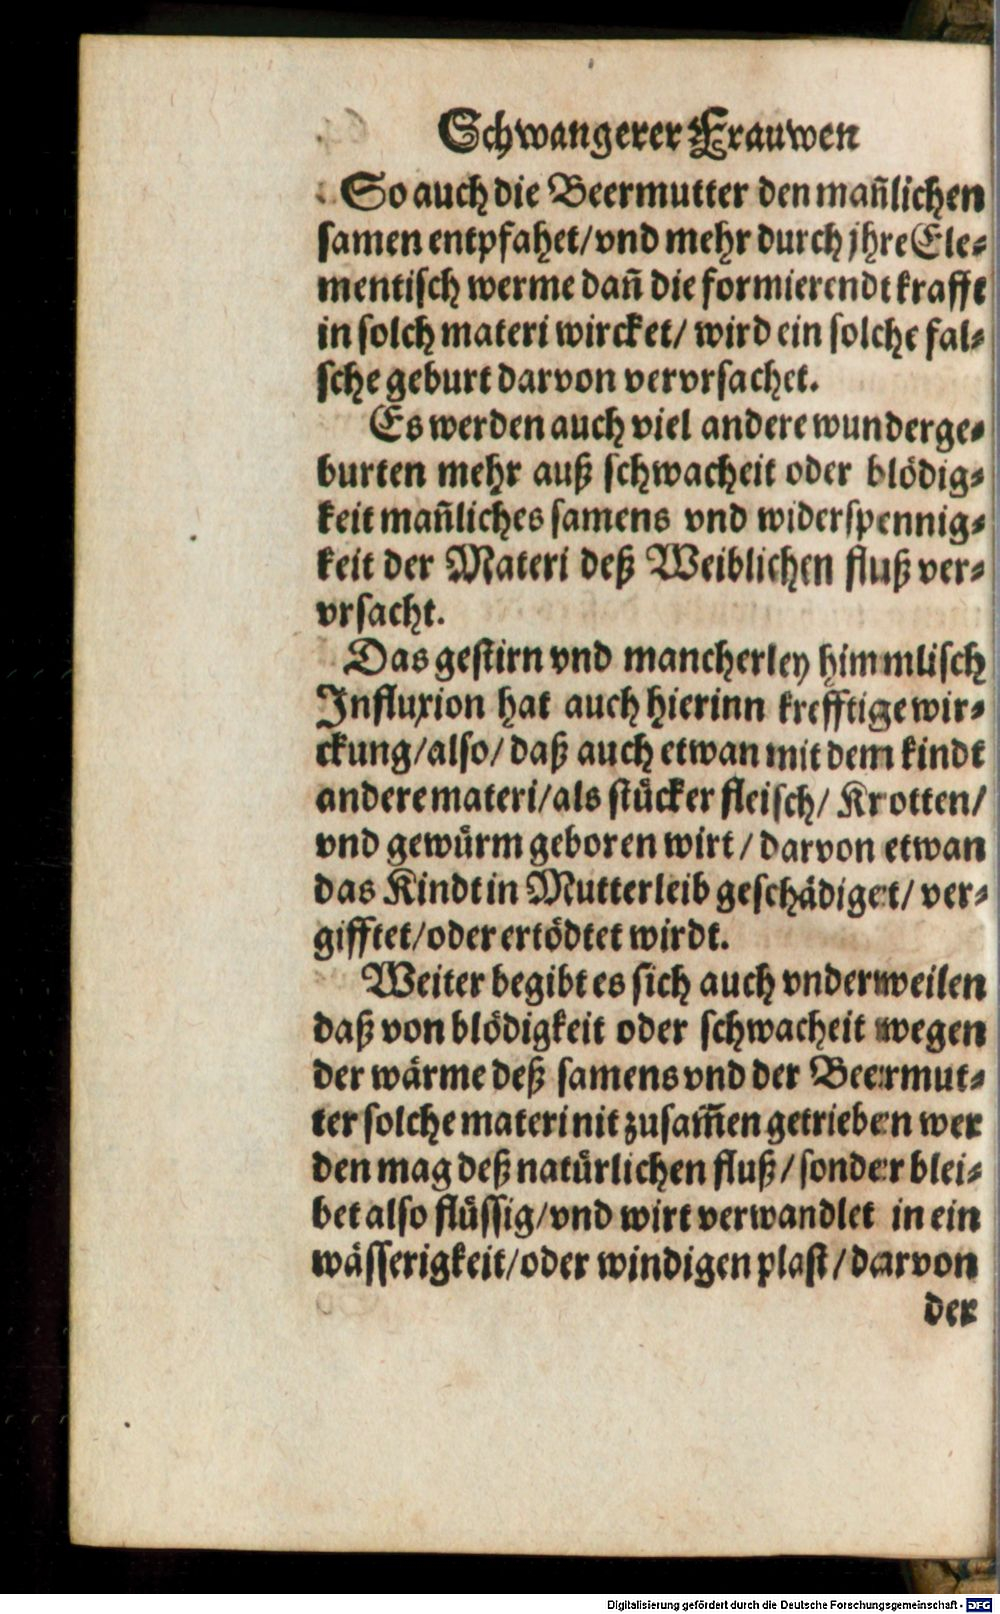 Schwangerer Frauwen
So auch die Beermutter den mañlichen
samen entpfahet/vnd mehr durch jhre Ele-
mentisch werme dañ die formierendt krafft
in solch materi wircket/ wird ein solche fal-
sche geburt darvon vervrsachet.
Es werden auch viel andere wunderge-
burten mehr auß schwacheit oder blödig-
keit mañliches samens vnd widerspennig-
keit der Materi deß Weiblichen fluß ver-
vrsacht.
Das gestirn vnd mancherley himmlisch
Influxion hat auch hierinn krefftige wir-
ckung/also/ daß auch etwan mit dem kindt
andere materi/als stücker fleisch/ Krotten/
vnd gewürm geboren wirt/ darvon etwan
das Kindt in Mutterleib geschädiget/ ver-
gifftet/oder ertödtet wirdt.
Weiter begibt es sich auch vnderweilen
daß von blödigkeit oder schwacheit wegen
der wärme deß samens vnd der Beermut-
ter solche materi nit zusam̃en getrieben wer
den mag deß natürlichen fluß/ sonder blei-
bet also flüssig/vnd wirt verwandlet in ein
wässerigkeit/oder windigen plast/darvon
der
Digitalisierung gefördert durch die Deutsche Forschungsgemeinschaft - DFG